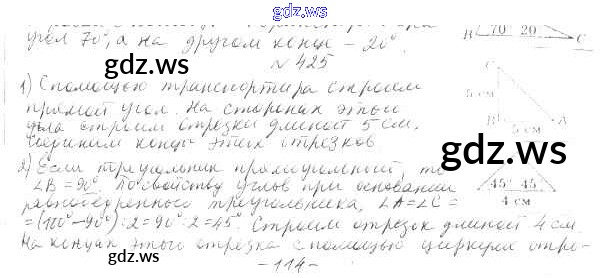 gdz.ws
угол 70°, а на другом конце – 20°.
B 70° 20° C
gdz.ws gdz.ws
N 425
1) С помощью транспортира строим
прямой угол. На сторонах этого
угла строим отрезки длиной 5 см.
Соединим концы этих отрезков.
C
5 см
B A
5 см
gdz.ws gdz.ws
2) Если треугольник прямоугольный, то
∠B = 90°. По свойству углов при основании
равнобедренного треугольника, ∠A = ∠C =
= (180° – 90°) : 2 = 90° : 2 = 45°. Строим отрезок длиной 4 см.
45° 45°
4 см
На концах этого отрезка с помощью циркуля отро-
– 114 –
gdz.ws